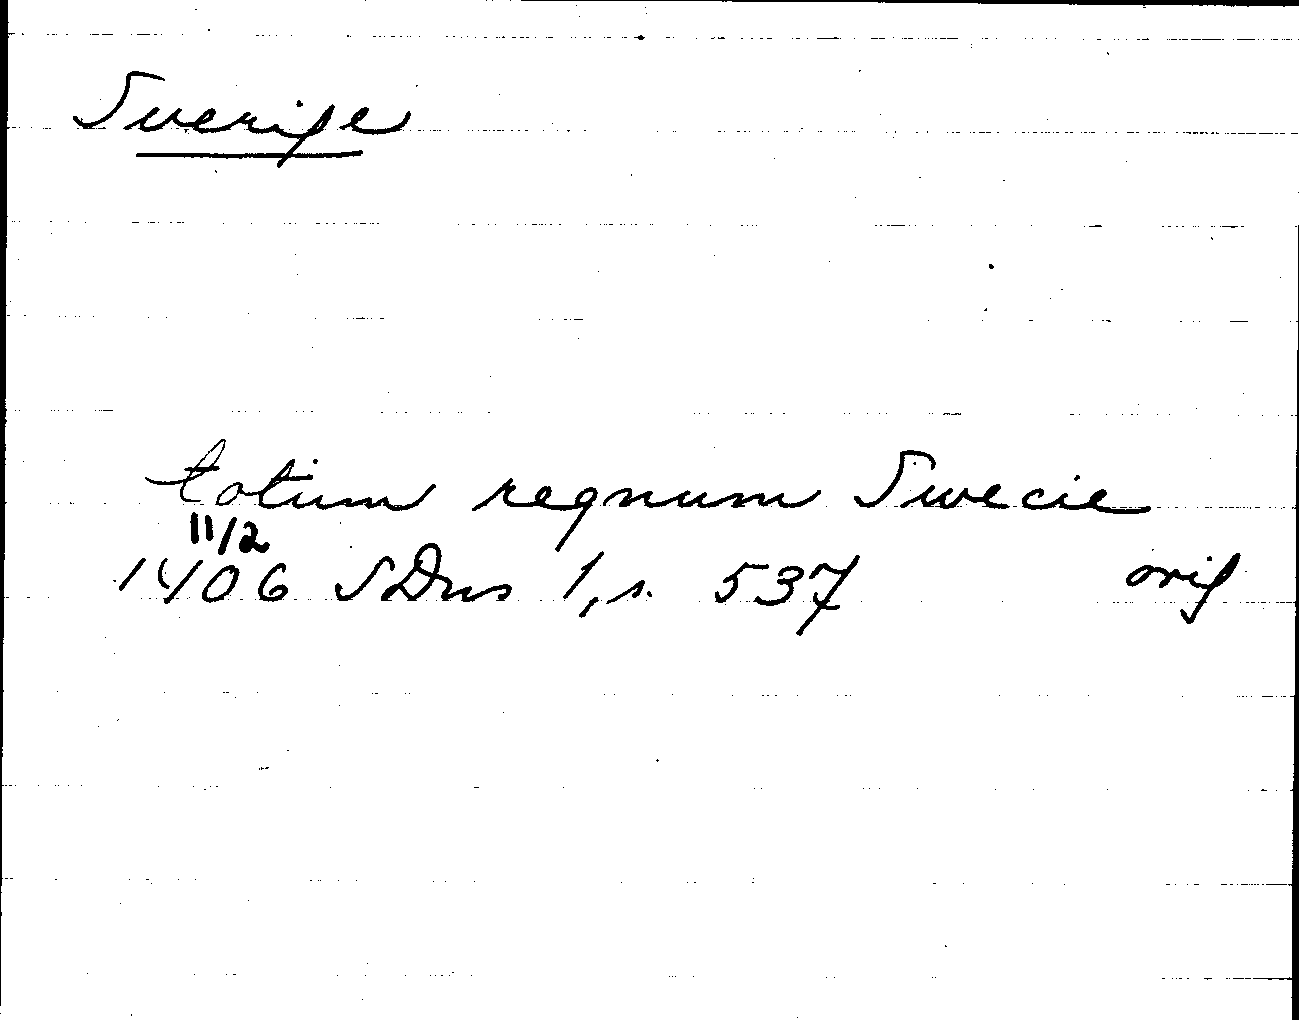 Sverige
totum regnum Swecie
11/2
1406 SDns 1, s. 537 orig